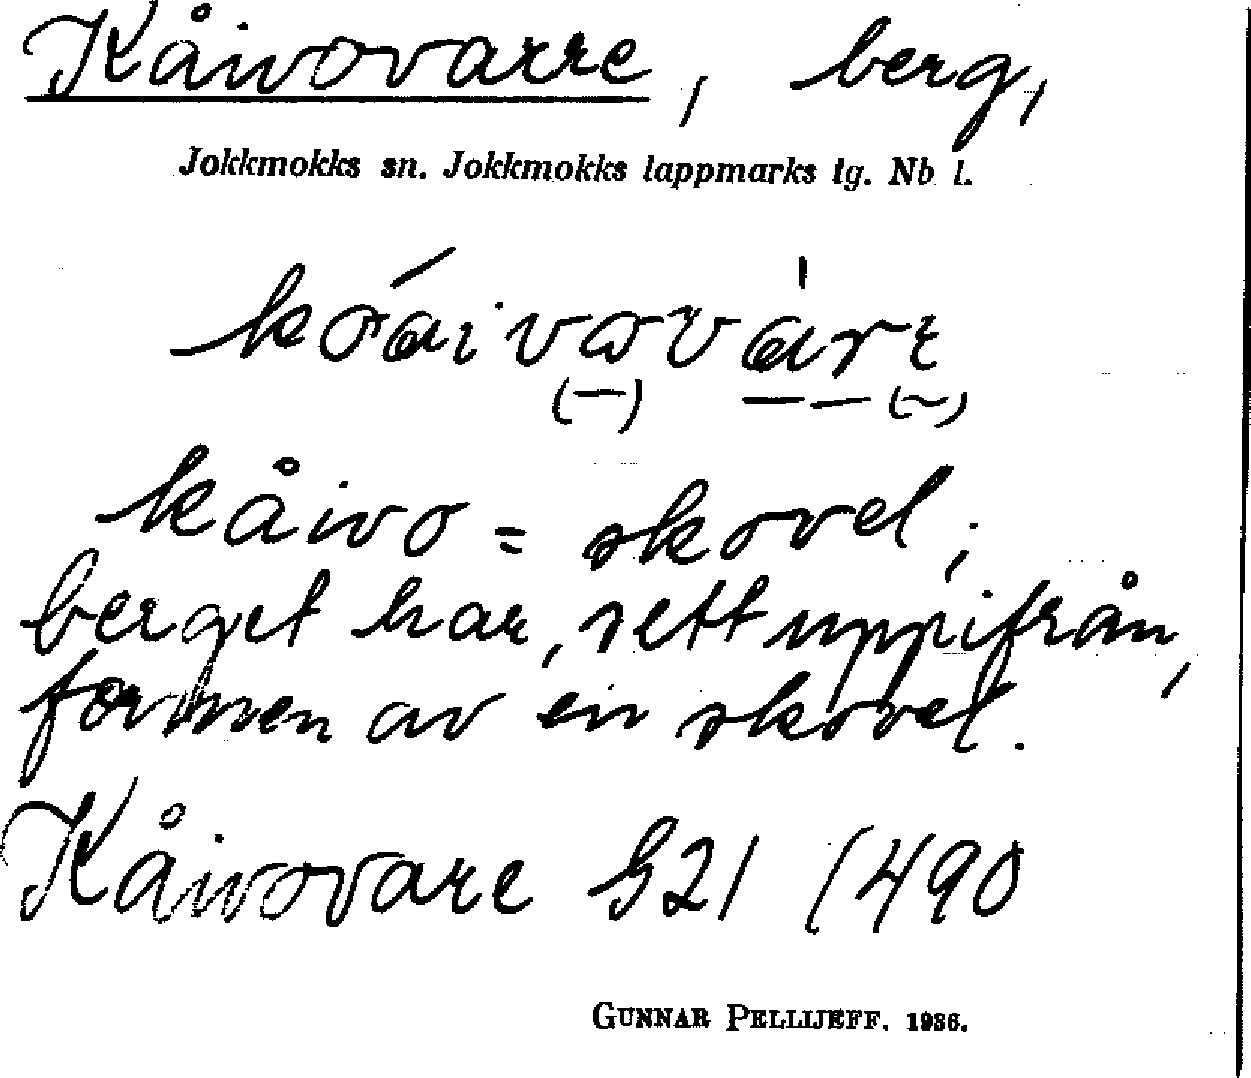 Kåivovarre, berg,
Jokkmokks sn. Jokkmokks lappmarks tg. Nb l.
kåivo = skovel;
berget har, sett uppifrån,
formen av en skovel.
Kåivovare G21 (490
GUNNAR PELLIJEFF. 1936.